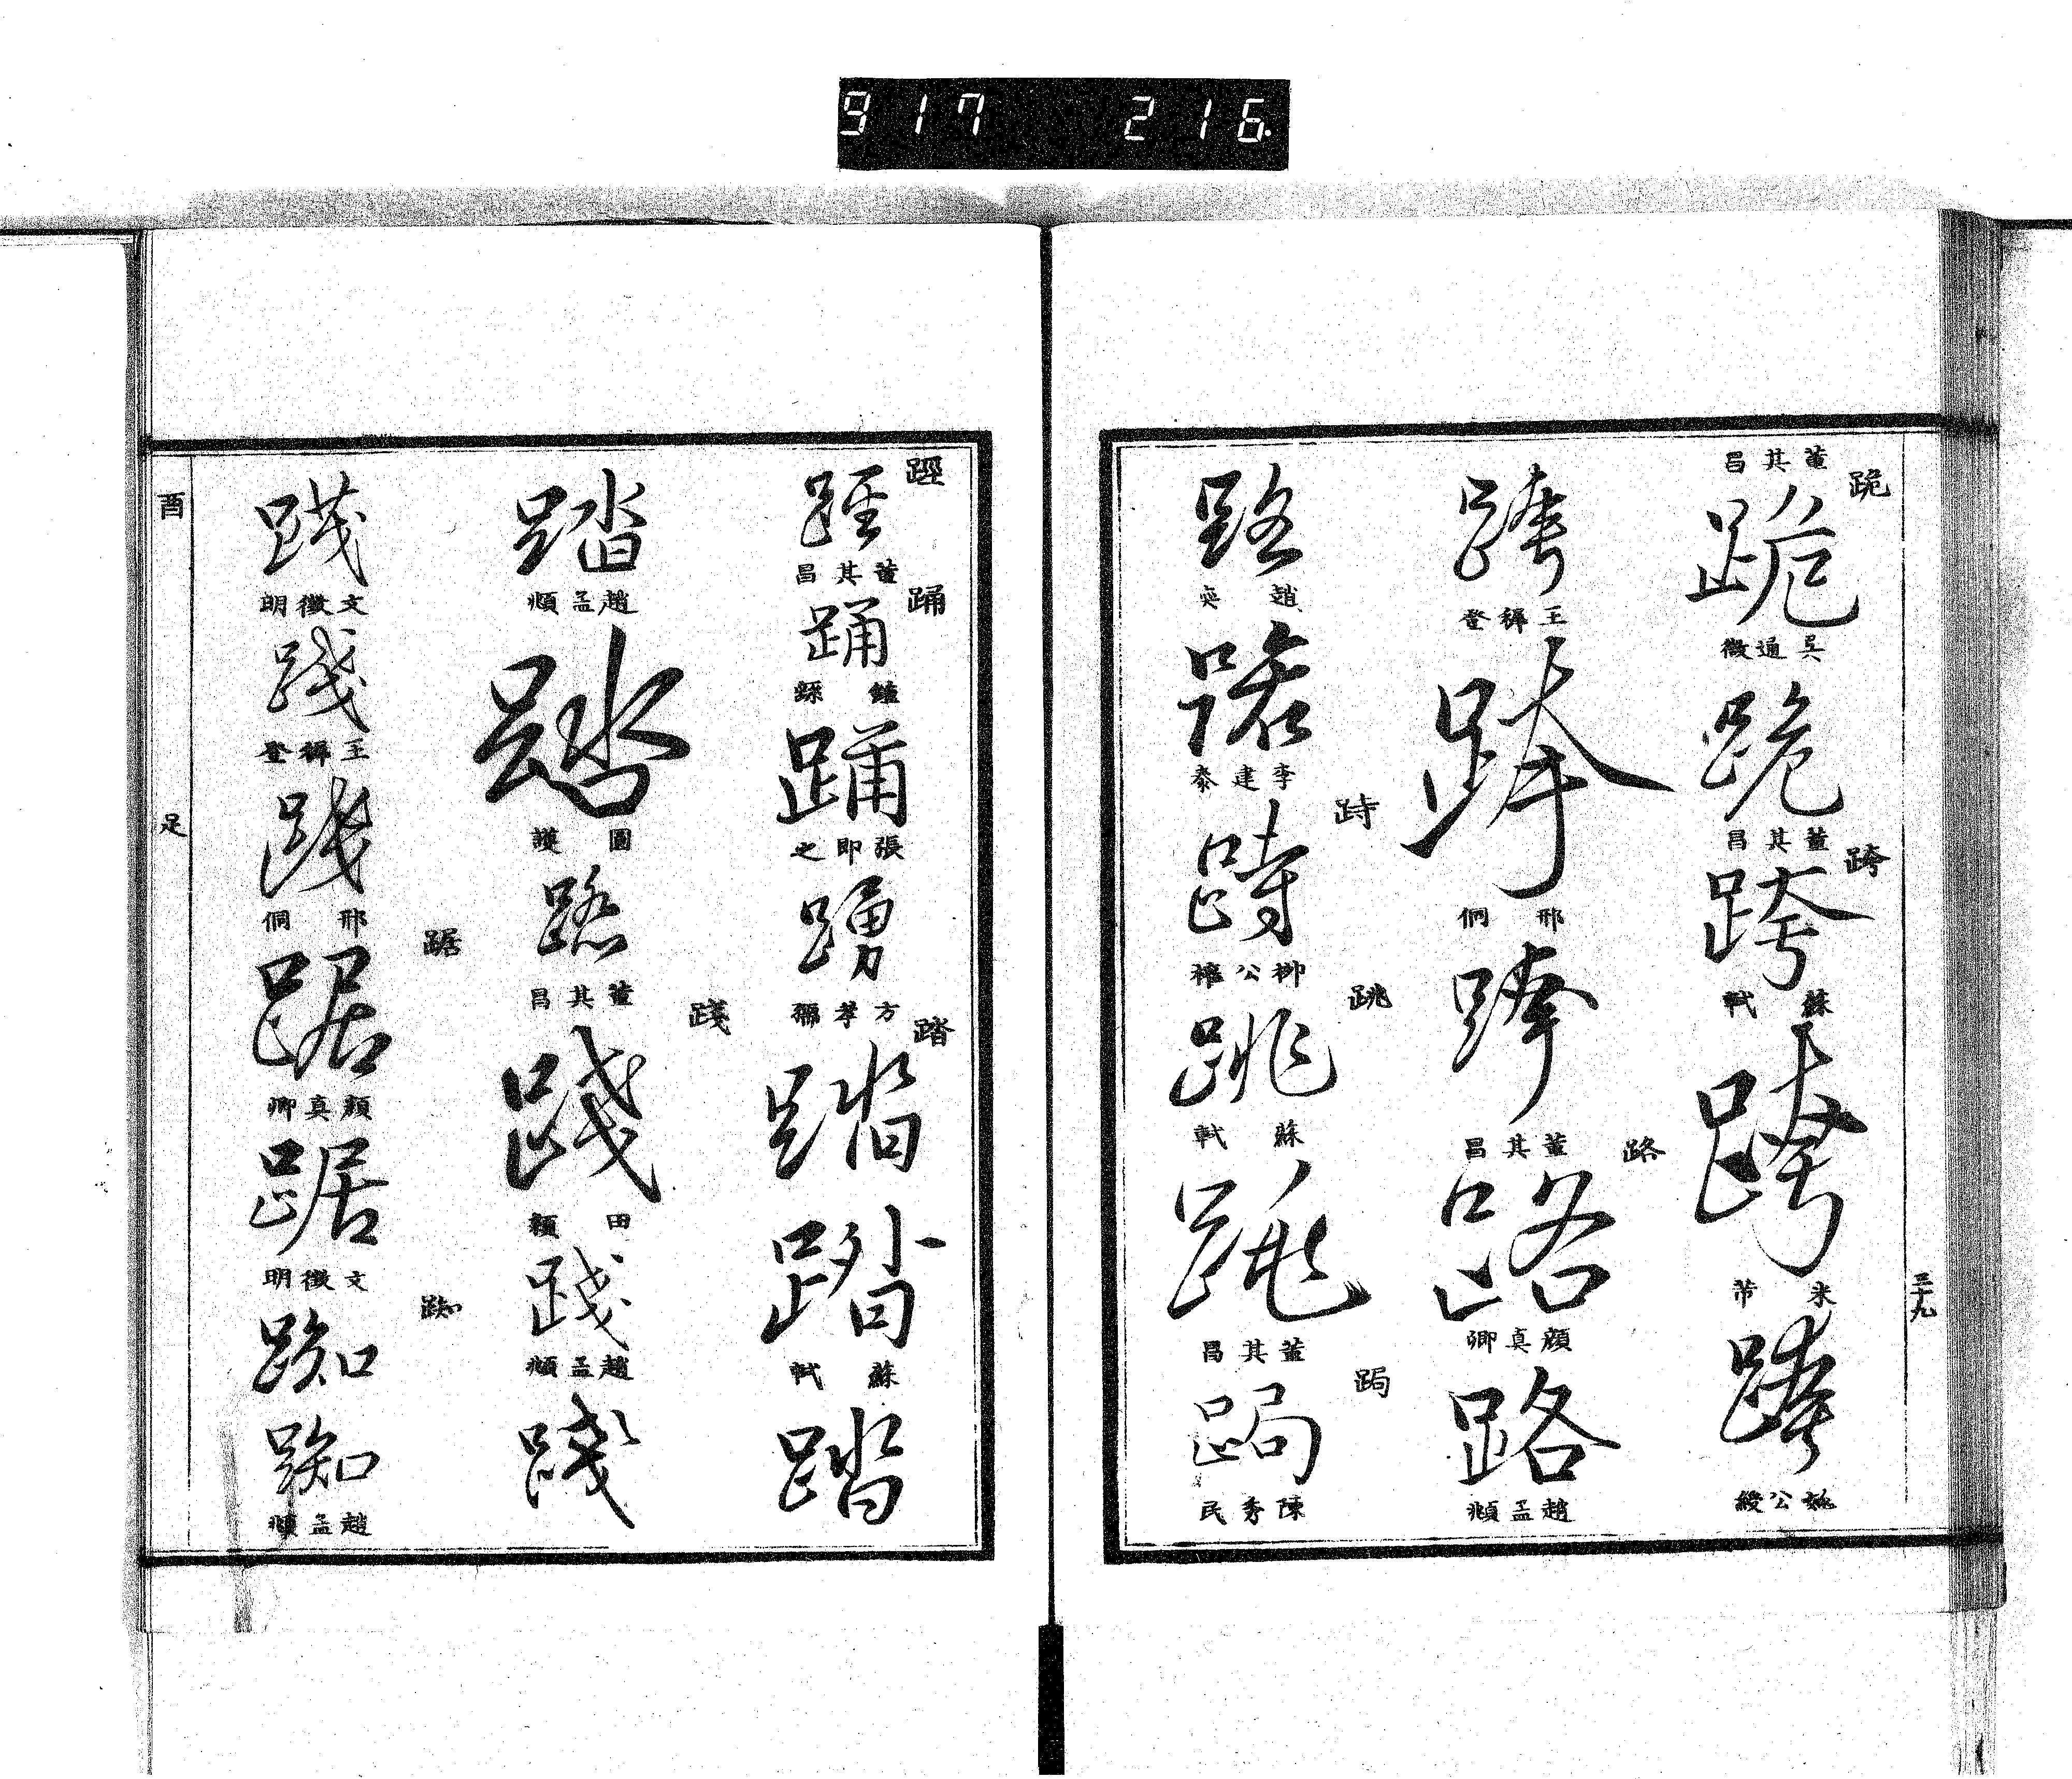 917 216.
三十九
跪
董其昌
跪
吳通微
跪
跨
董其昌
跨
蘇軾
跨
米芾
跨
姚公綬
跨
王穉登
跨
邢侗
跨
路
董其昌
路
顏真卿
路
趙孟頫
路
趙奕
路
李建泰
跱
跱
柳公權
跳
跳
蘇軾
跳
董其昌
跼
跼
陳秀民
踁
踁
董其昌
踊
踊
鍾繇
踊
張即之
踴
方孝孺
踏
踏
踏
蘇軾
踏
踏
趙孟頫
踏
董其昌
踐
踐
踐
趙孟頫
踐
踐
文徵明
踐
王穉登
踐
邢侗
踞
踞
顏真卿
踞
文徵明
踟
踟
踟
趙孟頫
酉
足